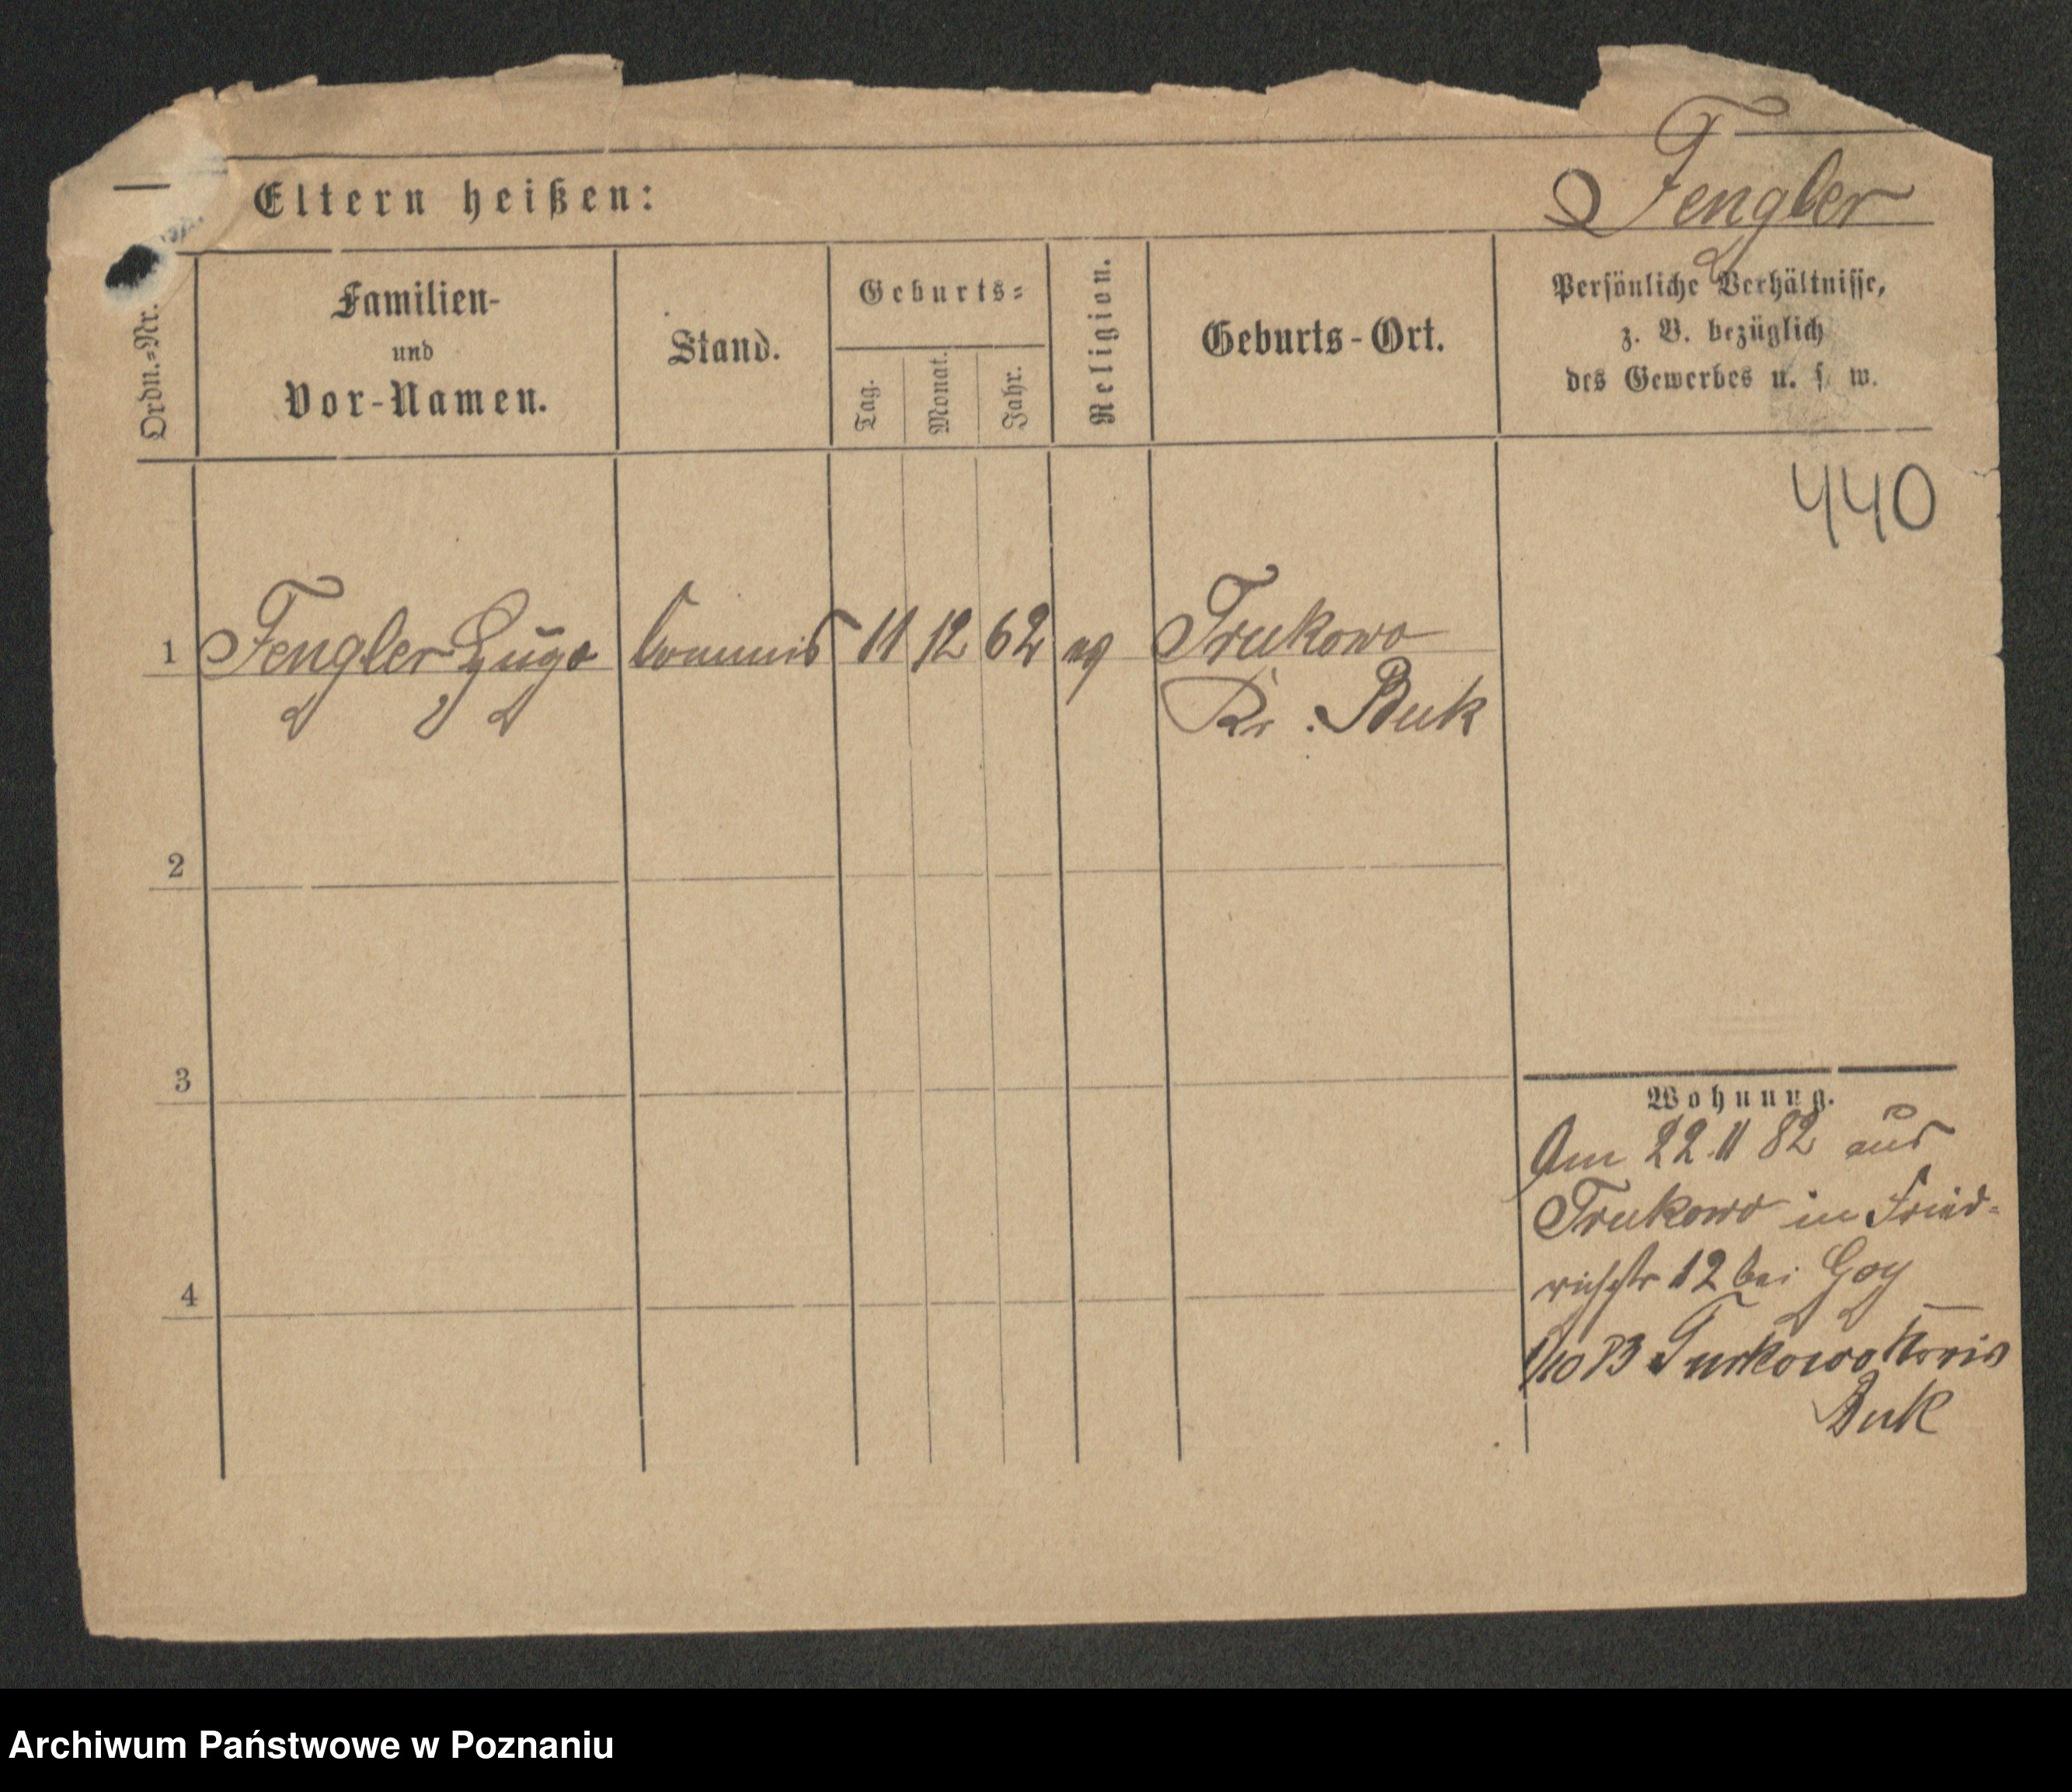 Eltern heißen:
Fengler
Ordn.-Nr.
Familien-
und
Vor-Namen.
Stand.
Geburts-
Tag.
Monat.
Jahr.
Religion.
Geburts-Ort.
Persönliche Verhältnisse,
z. B. bezüglich
des Gewerbes u. s. w.
440
1 Fengler Hugo Commis 11 12 62 ev Trukowo
Kr. Buk
2
3
4
Wohnung.
Am 22.11 82 aus
Trukowo in Fried-
richstr 12 bei Goy
1/10 83 Turkowo Kreis
Buk
Archiwum Państwowe w Poznaniu